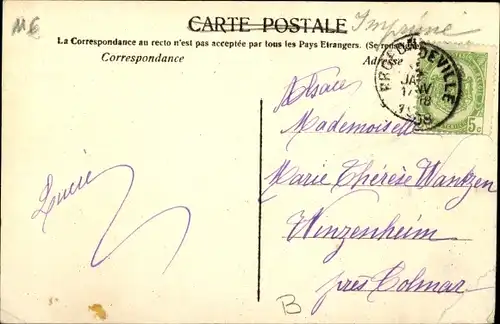 ME
CARTE POSTALE
Imprimé
La Correspondance au recto n'est pas acceptée par tous les Pays Etrangers. (Se renseigne
Correspondance
Adresse
PROFONDEVILLE
JANV
17-18
5c
Alsace
Mademoiselle
Marie Thérèse Wantzen
Winzenheim
près Colmar
Lucie
B